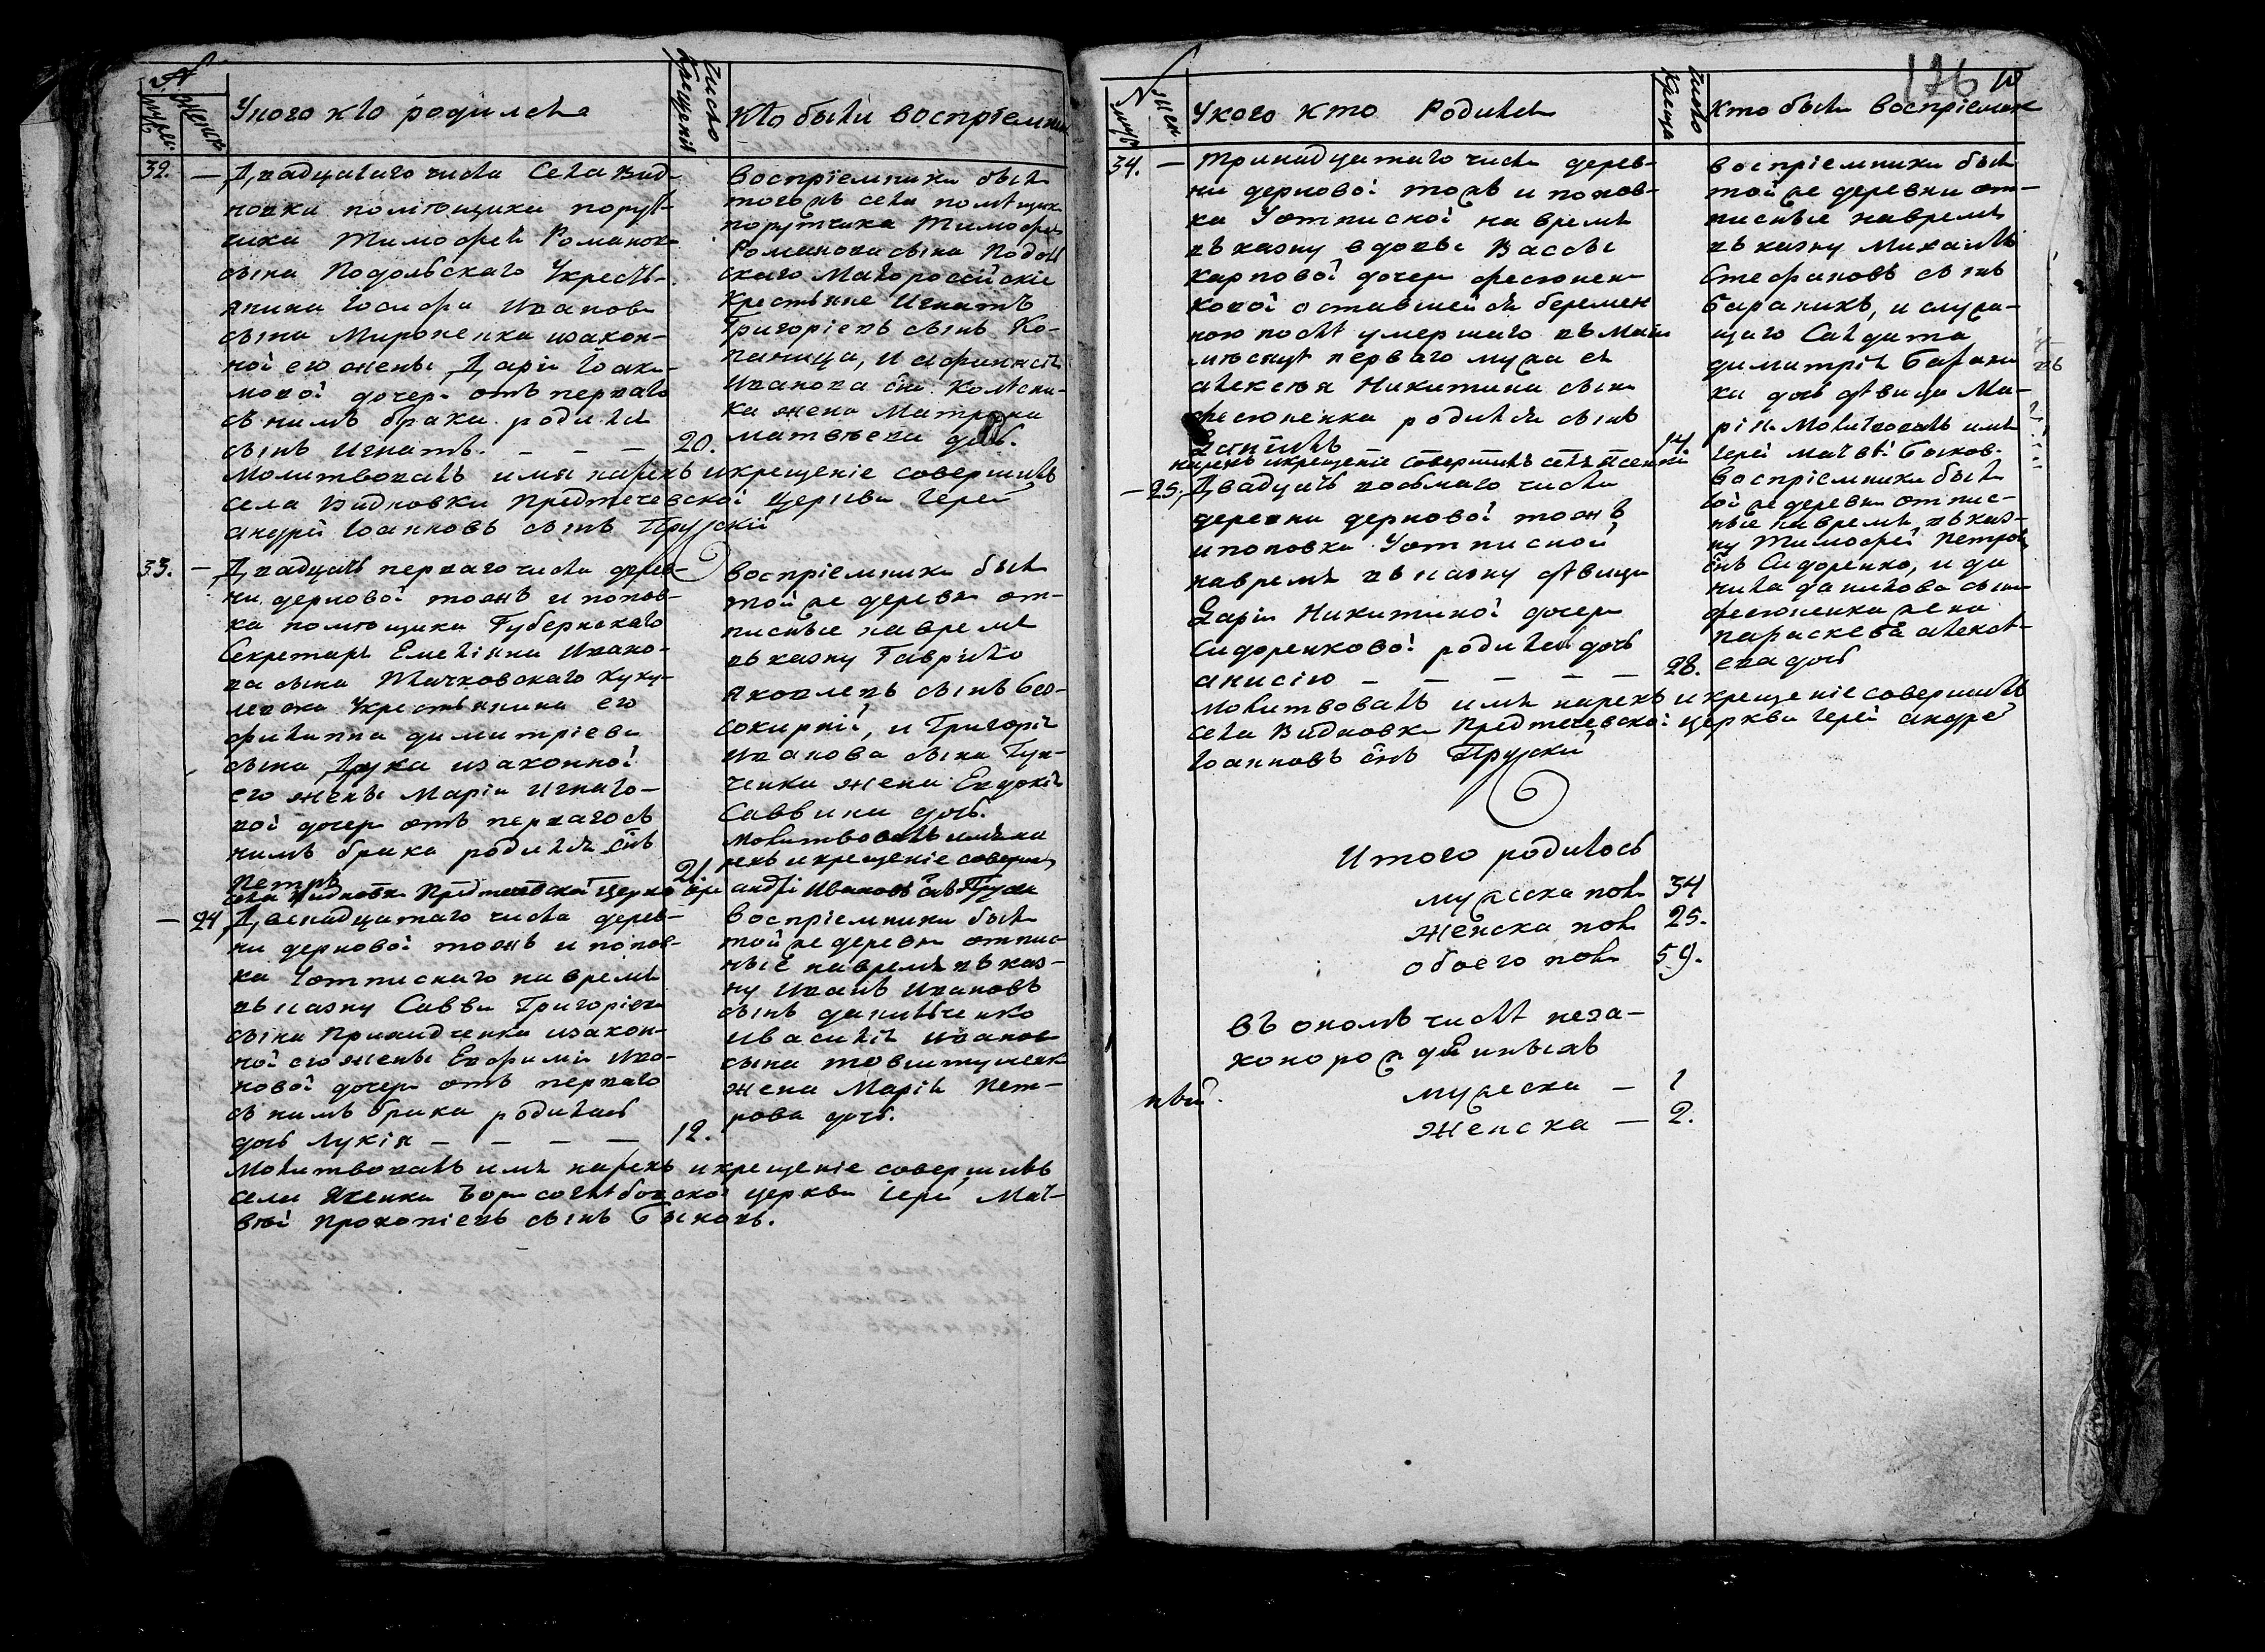 №
мужес: женск:
Укого кто родился
Число Крещенія
Кто были восприемники
32. — Двадцатаго числа Села Вид-
новки помѣщика порут-
чика Тимофея Романова
сына Подольскаго Укресть-
янина Іосифа Иванова
сына Мироненка изакон-
ной его жены Даріи Іоаки-
мовой дочери отъ перваго
съ нимъ брака родился
сынъ Игнатъ. — — — 20.
восприемники были
тогожъ села помѣщика
порутчика Тимофея
Романова сына Подоль
скаго Малороссійскіе
Крестьяне Игнатъ
Григоріевъ сынъ Ко-
паница, и Афанасія
Иванова сна Колесни-
ка жена Матрона
матвѣева дочь.
Молитвовалъ имя нарекъ икрещеніе совершилъ
села Видновки Предтечевской Церкви Іерей
андрей Іоанновъ сынъ Прускій
33. — Двадцать перваго числа дерев-
ни дерновой тожъ и попов-
ка помѣщика Губернскаго
Секретаря Емеліяна Ивано-
ва сына Тычковскаго Куку-
левска Укрестьянина его
филиппа димитріева
сына Друка изаконной
его жены Маріи Игнато-
вой дочери отъ перваго съ
нимъ брака родился снъ
Петръ 21.
восприемники были
той же деревни от-
писные навремя
въ казну Гаврило
яковлевъ сынъ Бло-
сокирній, и Григорія
Иванова сына Гун-
ченка жена Евдокія
Саввина дочь.
молитвовалъ имя на
рекъ и крещеніе совершилъ
села Видновки Предтечевской Церкви Іере андрей Ивановъ снъ Пруски
— 24 Двенадцатаго числа дерев-
ни дерновой тожъ и попов-
ка Уотписнаго навремя
въ казну Саввы Григоріева
сына Приходченка изакон-
ной его жены Евфиміи Ива-
новой дочери отъ перваго
съ нимъ брака родилась
дочь Лукія — — — — 12.
восприемники были
той же деревни отпис-
ные навремя въ каз-
ну Иванъ Ивановъ
сынъ данильченко
ивасилія иванова
сына товштуленка
жена Марія Пет-
рова дочь.
Молитвовалъ имя нарекъ икрещеніе совершилъ
села Ясенки Борисоглѣбовской церкви іерей Мат-
вѣй прокопіевъ сынъ Быковъ.
176
№
муж жен
Укого кто Родился
Число Крещен
Кто были восприемник
34. — тринадцатаго числа дерев-
ни дерновой тожъ и попов-
ка Уотписной на время
въ казну вдовы Вассы
карповой дочери фесюнен
ковой оставшейся беремен
ною послѣ умершаго въ Маіи
мѣсяцѣ перваго мужа ея
алексѣя Никитина сына
фесюненка родился сынъ
14.
нарекъ икрещеніе совершилъ села Ясенки
восприемники были
той же деревни от-
писные навремя
въ казну Михаилъ
Стефановъ сынъ
Бараникъ, и служа-
щаго Салдата
димитрія Барани
ка дочь дѣвица Ма-
рія. Молитвовалъ имя
іерей матвѣй Быков.
— 25. Двадцать восьмаго числа
деревни дерновой тожъ
ипоповка Уотписной
навремя въ казну дѣвицы
Даріи Никитиной дочери
Сидоренковой родилась дочь
анисію — — — — — 28.
восприемники были
той же деревни отпис-
ные навремя въ каз-
ну Тимофей Петровъ
снъ Сидоренко, и да
нила данилова сына
фесюненка жена
параскева алексѣ-
ева дочь
молитвовалъ имя нарекъ и крещеніе совершилъ
села Видновки Предтечевской церкви іерей андрей
Іоанновъ снъ Прускій
Итого родилось
мужеска пола 34
Женска пола 25.
обоего пола 59.
въ ономъ числѣ неза-
конорожденныхъ
мужеска — 1
Женска — 2.